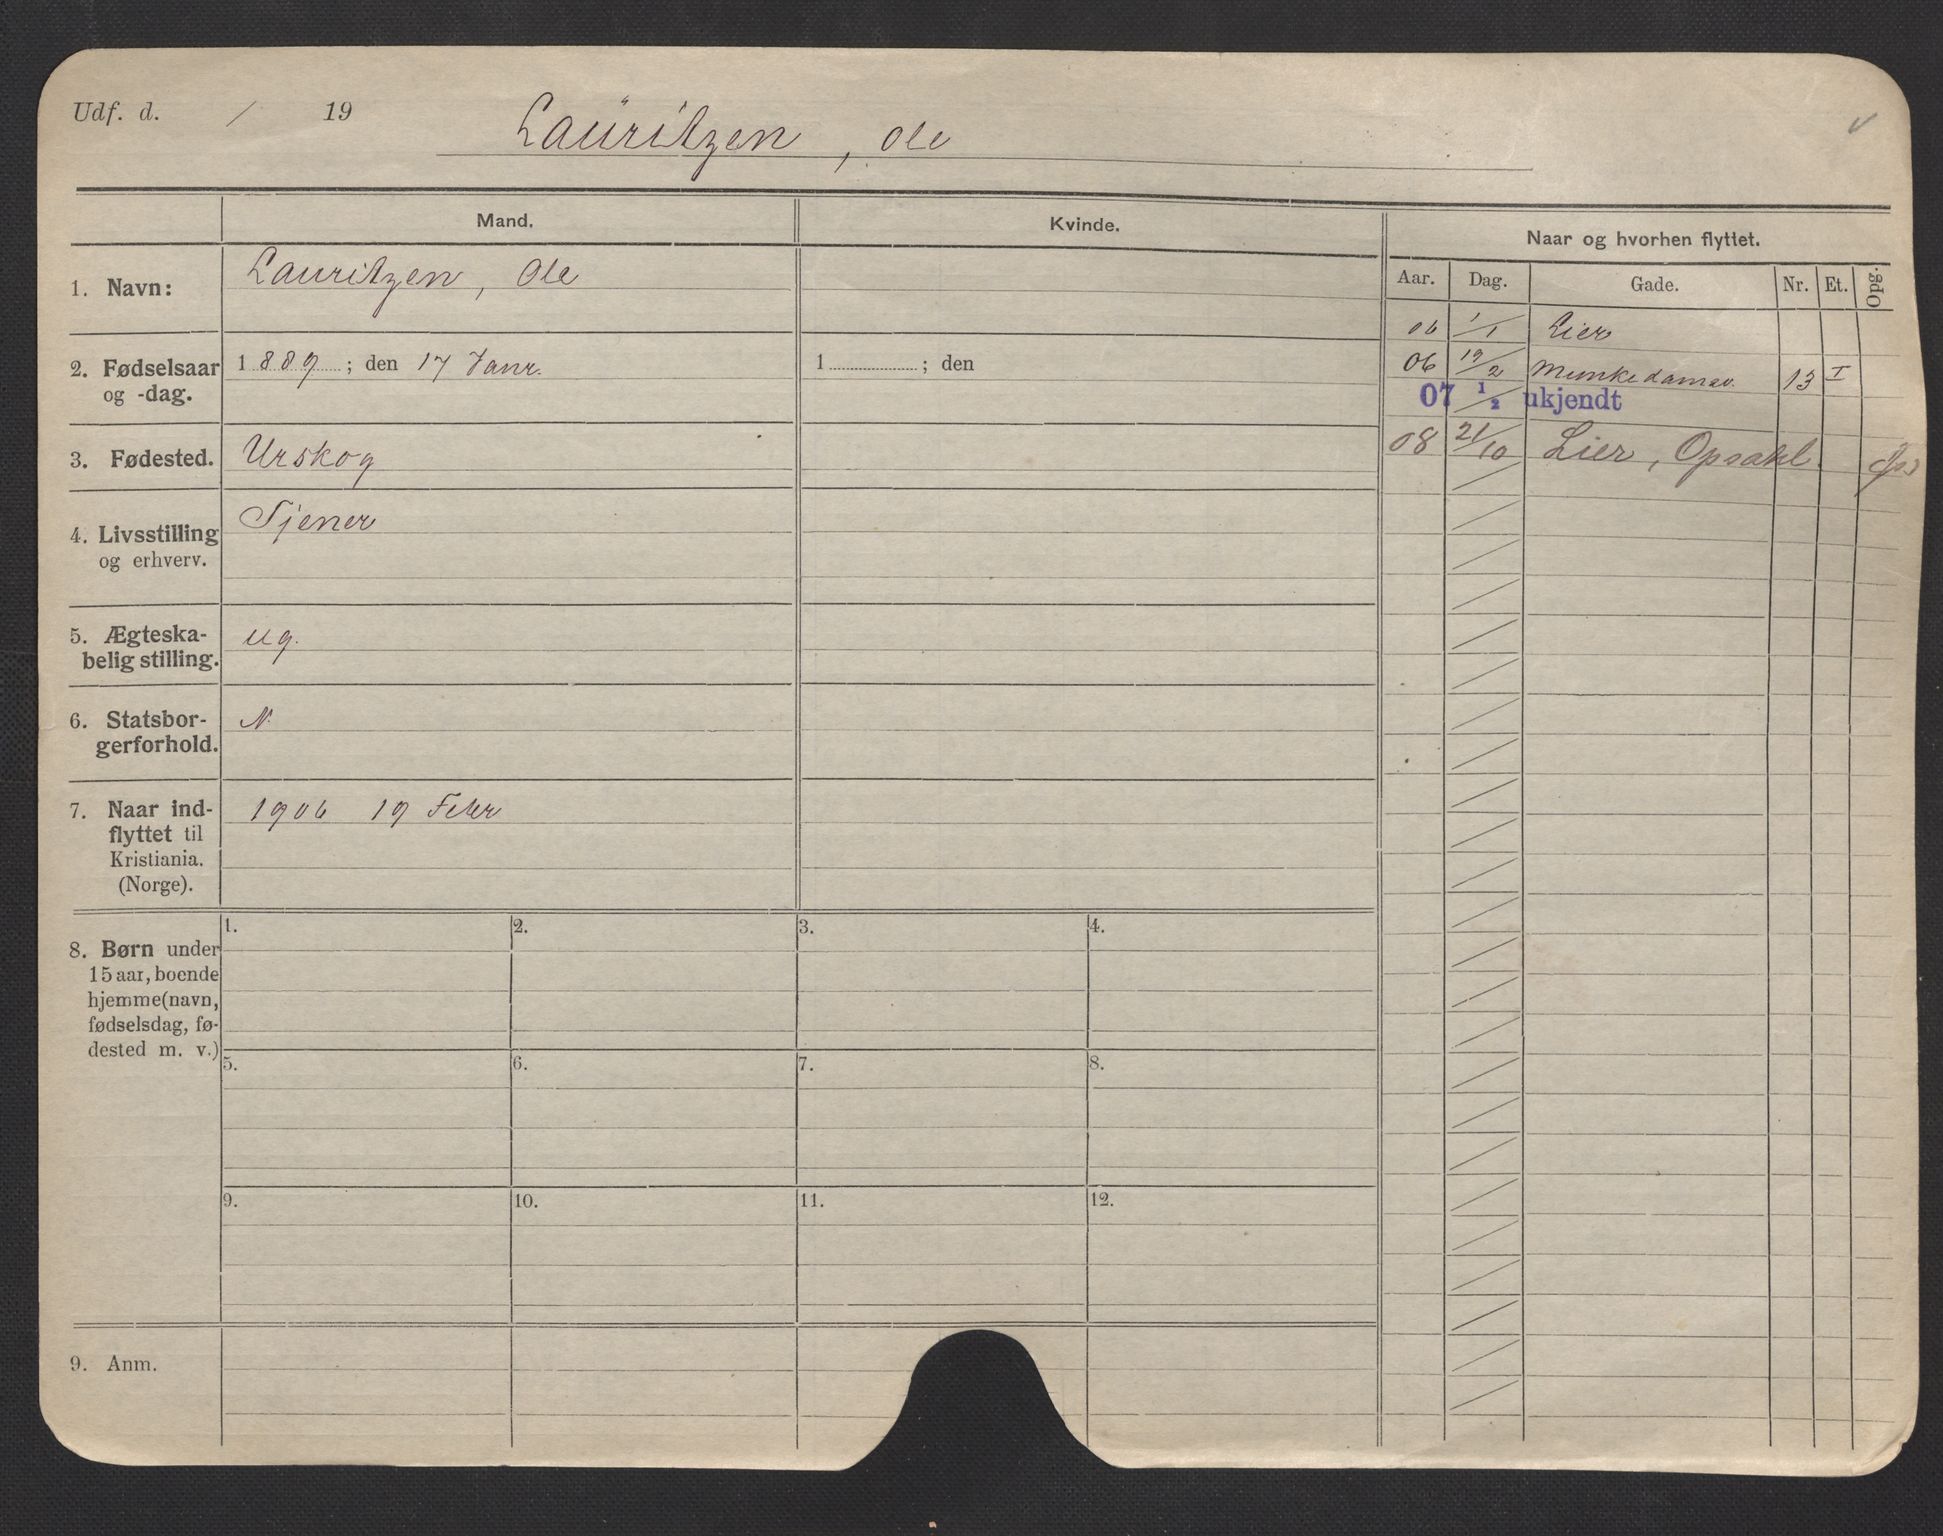 Udf. d. / 19
Lauritzen, Ole
Mand.
Kvinde.
Naar og hvorhen flyttet.
Aar. Dag. Gade. Nr. Et. Opg.
1. Navn: Lauritzen, Ole
06 1/1 Lier
2. Fødselsaar og -dag. 1889; den 17 Janr. 1 ; den
06 19/2 Munkedamsv. 13 I
07 1/2 ukjendt
3. Fødested. Urskog
08 21/10 Lier, Opsahl.
4. Livsstilling og erhverv. Tjener
5. Ægteska-
belig stilling. ug.
6. Statsbor-
gerforhold. N.
7. Naar ind-
flyttet til
Kristiania.
(Norge). 1906 19 Febr
8. Børn under
15 aar, boende
hjemme (navn,
fødselsdag, fø-
dested m. v.)
1. 2. 3. 4.
5. 6. 7. 8.
9. 10. 11. 12.
9. Anm.